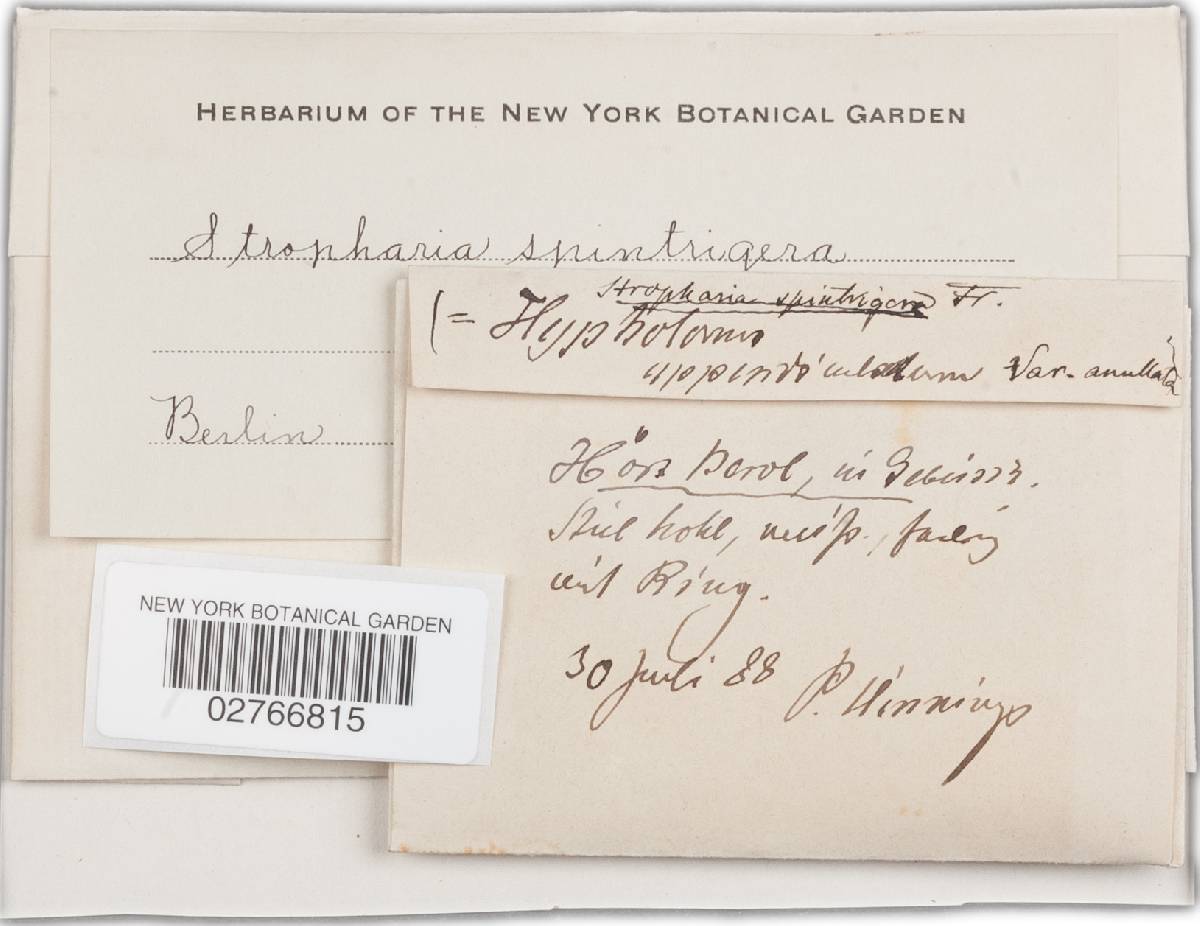 HERBARIUM OF THE NEW YORK BOTANICAL GARDEN
Stropharia spintrigera
Berlin
Stropharia spintrigera Fr.
(= Hypholoma
appendiculatum Var. annulata)
Hört Berol, in Gebüsch.
Stiel hohl, weiß, faserig
mit Ring.
30 Juli 88 P. Hennings
NEW YORK BOTANICAL GARDEN
02766815